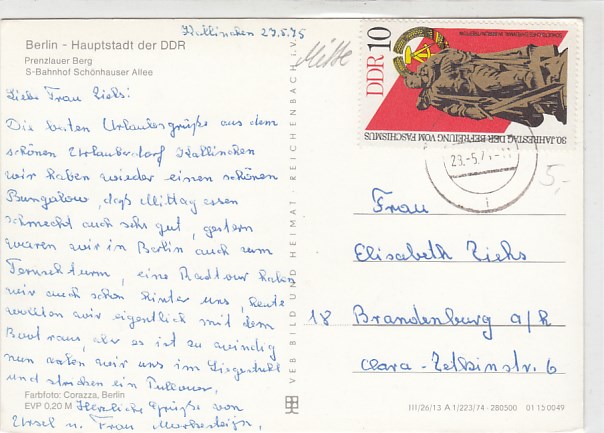 Kallinchen 29.5.75
Berlin - Hauptstadt der DDR
Prenzlauer Berg
S-Bahnhof Schönhauser Allee
Liebe Frau Ziehs!
Die besten Urlaubsgrüße aus dem
schönen Urlauberdorf Kallinchen
wir haben wieder einen schönen
Bungalow, daß Mittag essen
schmeckt auch sehr gut, gestern
waren wir in Berlin auch zum
Fernsehturm, eine Radtour haben
wir auch schon hinter uns, heute
wollten wir eigentlich mit dem
Boot raus, aber es ist zu windig
nun aalen wir uns im Liegestuhl
und stricken ein Pullover.
Farbfoto: Corazza, Berlin
EVP 0,20 M
Herzliche Grüße von
Ursel u. Frau
VEB BILD UND HEIMAT REICHENBACH i. V.
DDR 10
30. JAHRESTAG DER BEFREIUNG VOM FASCHISMUS
29.-5.7
i
5,-
Frau
Elisabeth Ziehs
18 Brandenburg a/H
Clara-Zetkinstr. 6
III/26/13 A 1/223/74 - 280500 01 15 0049